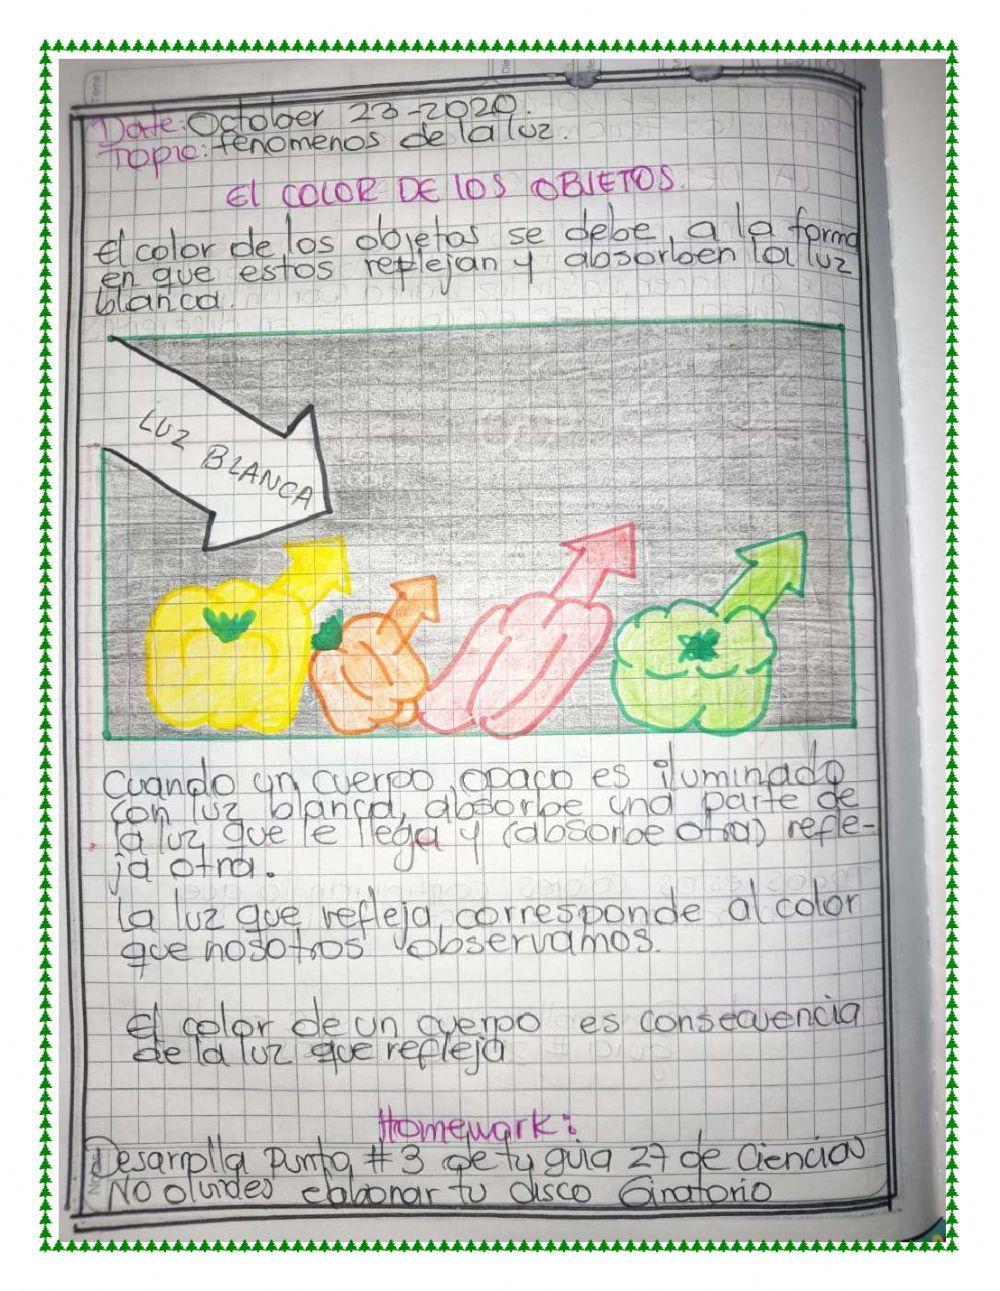 Date: October 23-2020.
Topic: fenomenos de la luz.
El COLOR DE LOS OBJETOS.
El color de los objetos se debe a la forma
en que estos reflejan y absorben la luz
blanca.
LUZ BLANCA
Cuando un cuerpo opaco es iluminado
con luz blanca, absorbe una parte de
la luz que le llega y (absorbe otra) refle-
ja otra.
La luz que refleja corresponde al color
que nosotros observamos.
El color de un cuerpo es consecuencia
de la luz que refleja
Homework:
Desarrolla punto # 3 de tu guia 27 de Ciencias
No olvides elaborar tu disco Giratorio